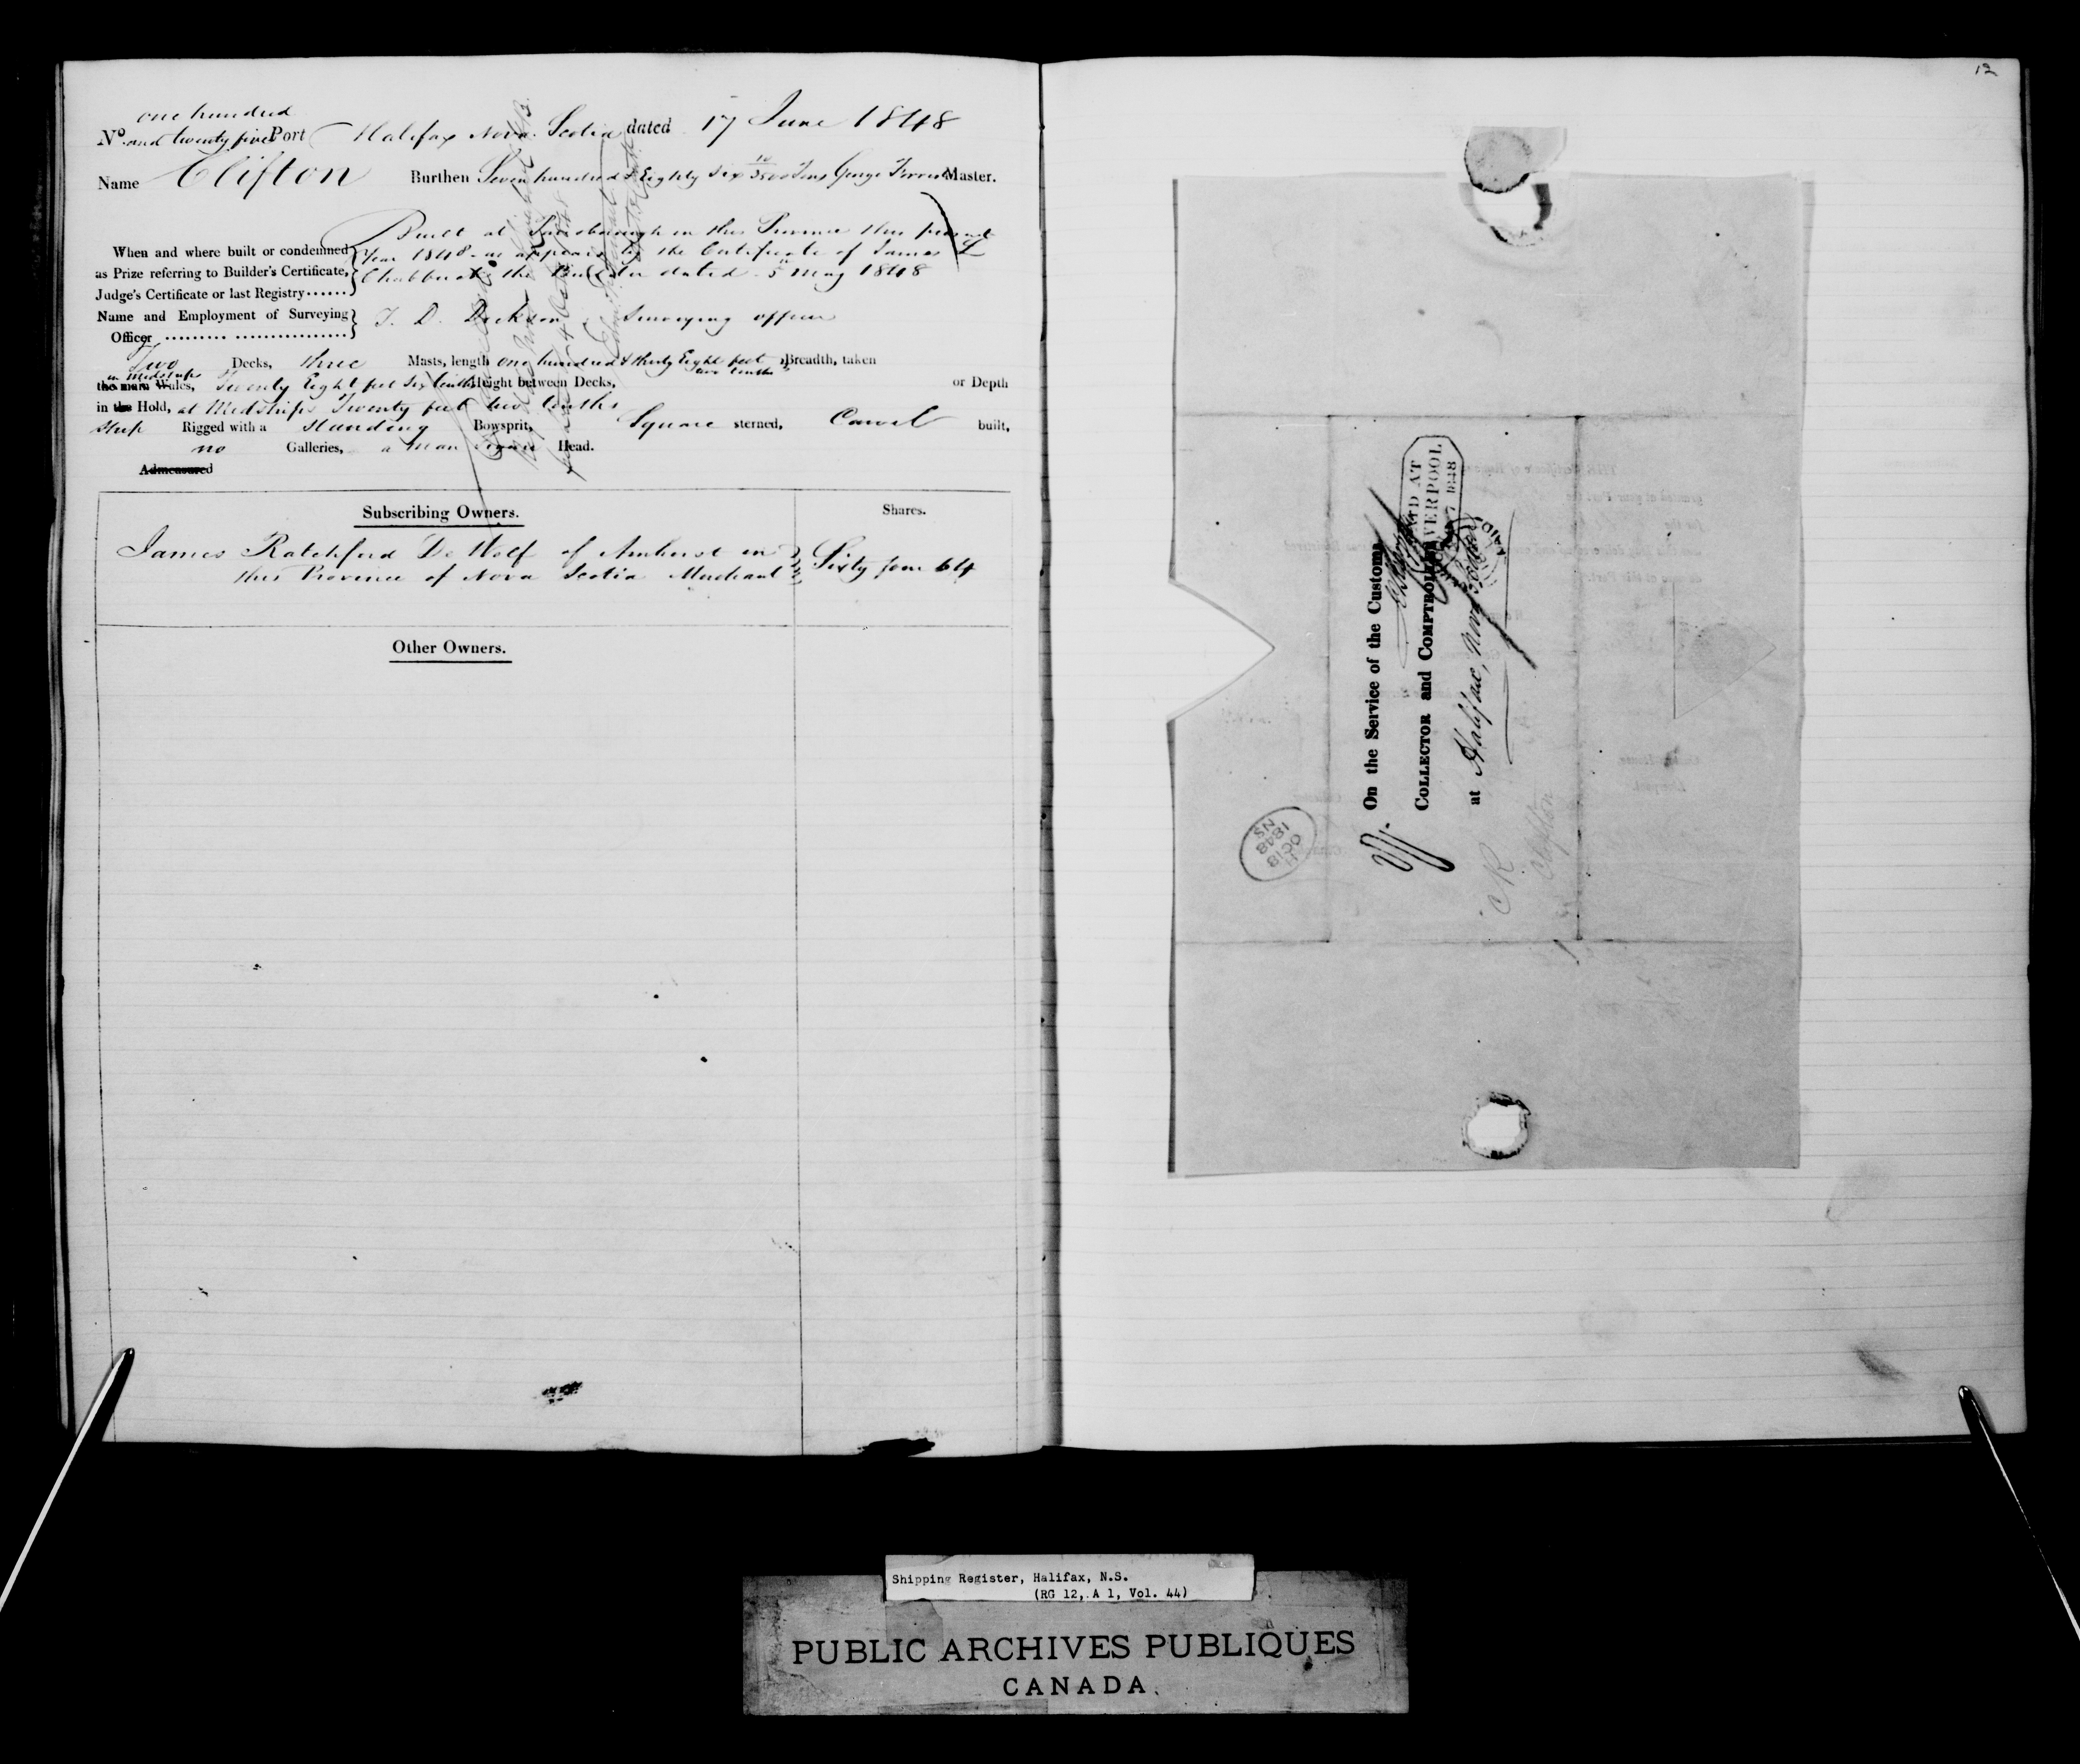 12
one hundred
No. and twenty five Port Halifax Nova Scotia dated 17 June 1848
Name Clifton Burthen Seven hundred & Eighty Six 10/3500 Tons George Master.
Built at Parrsborough in this Province this present
When and where built or condemned year 1848 as appears by the Certificate of James
as Prize referring to Builder's Certificate, the Builder dated 5th May 1848
Judge's Certificate or last Registry......
Name and Employment of Surveying T. D. Dickson Surveying officer
Officer
Two Decks, three Masts, length one hundred & thirty Eight feet Breadth, taken
two tenths
in Midships
the main Wales, Twenty Eight feet Six tenths Height between Decks, or Depth
in the Hold, at Midships Twenty feet two tenths
Ship Rigged with a standing Bowsprit, Square sterned, Carvel built,
no Galleries, a Man Figure Head.
Admeasured
Subscribing Owners. Shares.
James Ratchford De Wolf of Amherst in Sixty four 64
this Province of Nova Scotia Merchant
Other Owners.
On the Service of the Customs.
COLLECTOR and COMPTROLLER
at Halifax, Nova Scotia
PAID AT
LIVERPOOL
1848
PAID
H
OC 18
1848
NS
CR
Clifton
Shipping Register, Halifax, N.S.
(RG 12, A 1, Vol. 44)
PUBLIC ARCHIVES PUBLIQUES
CANADA